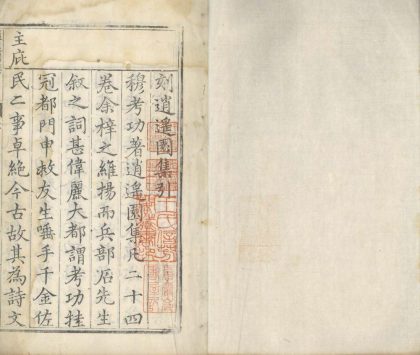 刻逍遙園集引
穆考功著逍遙園集凡二十四
卷余梓之維揚而兵部后先生
叙之詞甚偉麗大都謂考功挂
冠都門申救友生唾手千金佐
主庇民二事卓絶今古故其為詩文